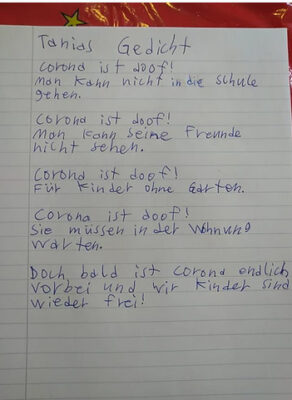 Tanias Gedicht
Corona ist doof!
Man kann nicht in die Schule
gehen.
Corona ist doof!
Man kann seine Freunde
nicht sehen.
Corona ist doof!
Für Kinder ohne Garten.
Corona ist doof!
Sie müssen in der Wohnung
warten.
Doch bald ist Corona endlich
vorbei und wir Kinder sind
wieder frei!